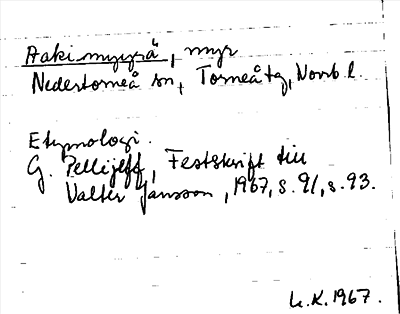 Aakimyyrä, myr
Nedertorneå sn, Torneå tg, Norrb. l.
Etymologi.
G. Pellijeff, Festskrift till
Valter Jansson, 1967, s. 91, s. 93.
L.K. 1967.